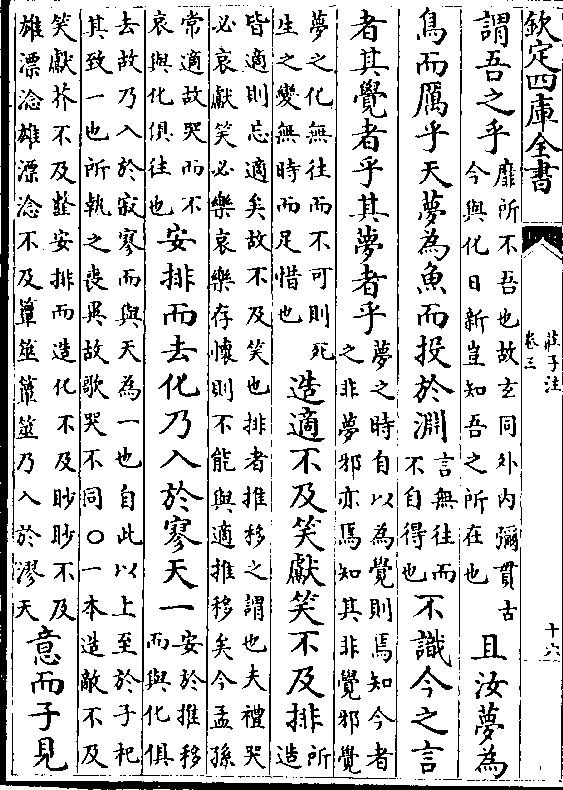 欽定四庫全書
莊子注
卷三
十六
謂吾之乎靡所不吾也故玄同外内彌貫古今與化日新豈知吾之所在也且汝夢為
鳥而厲乎天夢為魚而投於淵言無往而不自得也不識今之言
者其覺者乎其夢者乎夢之時自以為覺則焉知今者之非夢邪亦焉知其非覺邪覺
夢之化無往而不可則死生之變無時而足惜也造適不及笑獻笑不及排所造
皆適則忘適矣故不及笑也排者推移之謂也夫禮哭必哀獻笑必樂哀樂存懷則不能與適推移矣今孟孫
常適故哭而不哀與化俱往也安排而去化乃入於寥天一安於推移而與化俱
去故乃入於寂寥而與天為一也自此以上至於子杞其致一也所執之喪異故歌哭不同○一本造敵不及
笑獻芥不及安排而造化不及眇眇不及雄漂淰雄漂淰不及簟筮簟筮乃入於漻天意而子見